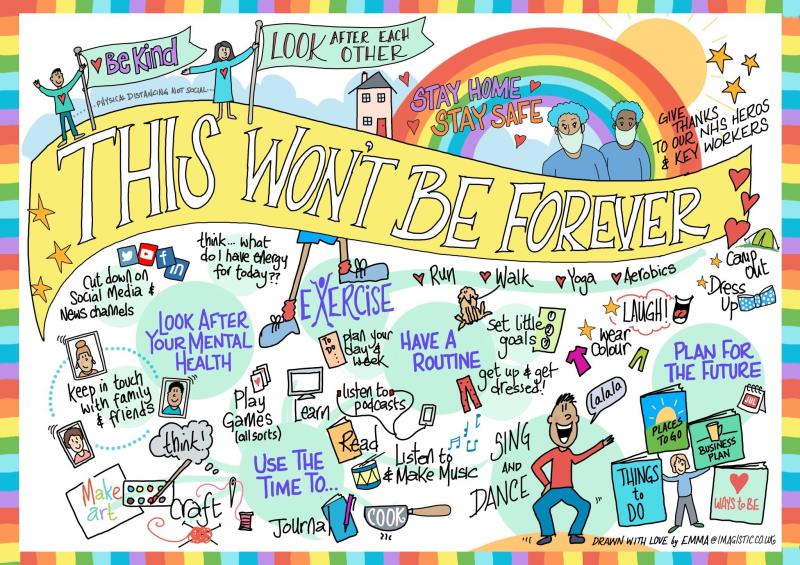 Be Kind
LOOK AFTER EACH
OTHER
...PHYSICAL DISTANCING NOT SOCIAL...
STAY HOME
STAY SAFE
GIVE
THANKS
TO OUR NHS HEROS
& KEY WORKERS
THIS WON'T BE FOREVER
Cut down on
Social Media &
News channels
f
in
think... what
do I have energy
for today??
EXERCISE
Run
Walk
Yoga
Aerobics
Camp
out
Dress
Up
LOOK AFTER
YOUR MENTAL
HEALTH
TO DO
plan your
day &
week
HAVE A
ROUTINE
Set little
goals
get up & get
dressed!
LAUGH!
wear
Colour
PLAN FOR
THE FUTURE
JUL
keep in touch
with family
& friends
Play
Games
(all sorts)
Learn
listen to
podcasts
think!
Make
art
Craft
USE THE
TIME TO...
Read
Listen to
& Make Music
Journal
COOK
SING
AND
DANCE
lalala
PLACES
TO GO
BUSINESS
PLAN
THINGS
to
DO
WAYS to BE
DRAWN WITH LOVE by EMMA @IMAGISTIC.CO.UK